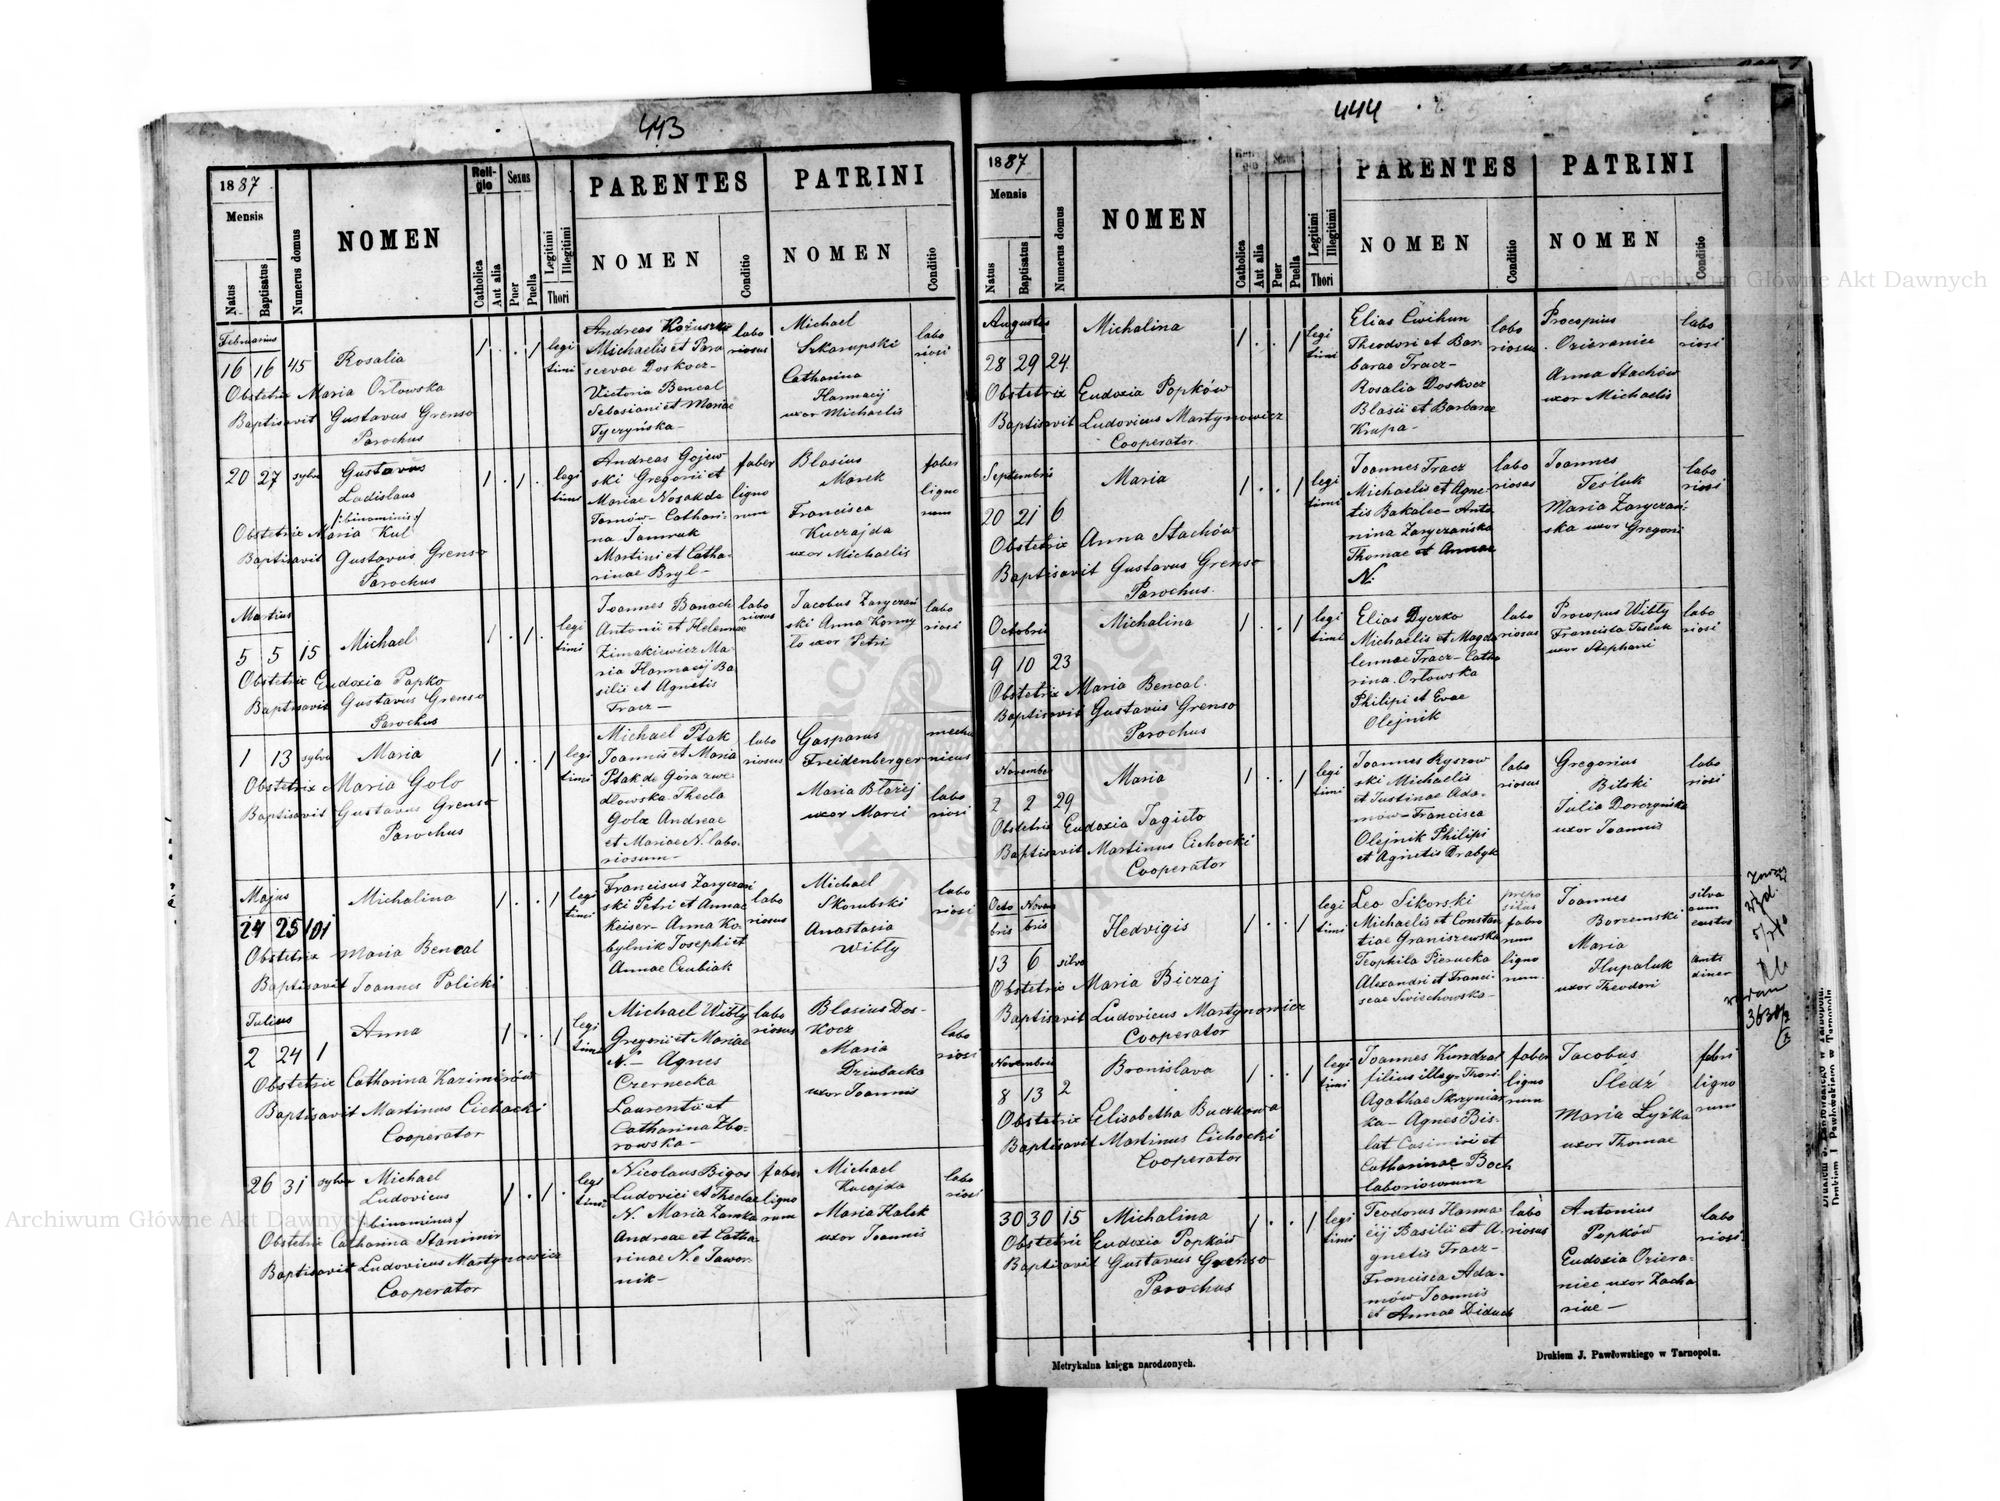 443
1887
Mensis
Natus
Baptisatus
Numerus domus
NOMEN
Reli-
gio
Catholica
Aut alia
Sexus
Puer
Puella
Legitimi
Illegitimi
Thori
PARENTES
NOMEN
Conditio
PATRINI
NOMEN
Conditio
Februarius
16 16 45 Rosalia
1 . . 1
legi
timi
Obstetrix Maria Orłowska
Baptisavit Gustavus Grenso
Parochus
Andreas Kożuszko
Michaelis et Para
scevae Doskocz-
Victoria Bencal
Sebasiani et Mariae
Tyczyńska-
labo
riosus
Michael
Szkarupski
Catharina
Harmacij
uxor Michaelis
labo
riosi
20 27 sylva Gustavus
Ladislaus
/:binominis:/
1 . 1 .
legi
timi
Obstetrix Maria Kul
Baptisavit Gustavus Grenso
Parochus
Andreas Gojew
ski Gregorii et
Mariae Nosal de
Tarnów- Cathari-
na Jamruk
Martini et Catha-
rinae Bryl-
faber
ligno
rum
Blasius
Marek
Francisca
Kuczajda
uxor Michaelis
faber
ligno
rum
Martius
5 5 15 Michael
1 . 1 .
legi
timi
Obstetrix Eudoxia Popko
Baptisavit Gustavus Grenso
Parochus
Joannes Banach
Antonii et Helennae
Zimakiewicz Ma-
ria Harmacij Ba
silii et Agnetis
Tracz-
labo
riosus
Jacobus Zaryczań
ski Anna Korny
ło uxor Petri
labo
riosi
1 13 sylva Maria
1 . . 1
legi
timi
Obstetrix Maria Golo
Baptisavit Gustavus Grenso
Parochus
Michael Ptak
Joannis et Maria
Ptak de Góra zwe
dłowska Thecla
Golx Andreae
et Mariae N. labo-
riosum-
labo
riosus
Gasparus
Freidenberger
Maria Błażej
uxor Marci
mecha
nicus
labo
riosi
Majus
24 25 101 Michalina
1 . . 1
legi
timi
Obstetrix Maria Bencal
Baptisavit Joannes Policki
Franciscus Zaryczań
ski Petri et Annae
Keiser- Anna Ko-
bylnik Josephi et
Annae Czubiak
labo
riosus
Michael
Skoubski
Anastasia
Witły
labo
riosi
Julius
2 24 1 Anna
1 . . 1
legi
timi
Obstetrix Catharina Kazimirów
Baptisavit Martinus Cichocki
Cooperator
Michael Witły
Gregorii et Mariae
N.- Agnes
Czernecka
Laurentii et
Catharina Zbo-
rowska-
labo
riosus
Blasius Dos-
kocz
Maria
Dziubacka
uxor Joannis
labo
riosi
26 31 sylva Michael
Ludovicus
/:binominus:/
1 . 1 .
legi
timi
Obstetrix Catharina Stanimir
Baptisavit Ludovicus Martynowicz
Cooperator
Nicolaus Bigos
Ludovici et Theclae
N. Maria Zamka
Andreae et Catha
rinae N. e Jawor-
nik-
faber
ligno
rum
Michael
Kucajda
Maria Halsk
uxor Joannis
labo
riosi
444
1887
Mensis
Natus
Baptisatus
Numerus domus
NOMEN
Catholica
Aut alia
Sexus
Puer
Puella
Legitimi
Illegitimi
Thori
PARENTES
NOMEN
Conditio
PATRINI
NOMEN
Conditio
Augustus
28 29 24 Michalina
1 . . 1
legi
timi
Obstetrix Eudoxia Popków
Baptisavit Ludovicus Martynowicz
Cooperator
Elias Cwihun
Theodori et Bar-
barae Tracz-
Rosalia Doskocz
Blasii et Barbarae
Krupa-
labo
riosus
Procopius
Ozieranice
Anna Stachów
uxor Michaelis
labo
riosi
Septembris
20 21 6 Maria
1 . . 1
legi
timi
Obstetrix Anna Stachów
Baptisavit Gustavus Grenso
Parochus
Joannes Tracz
Michaelis et Agne-
tis Bakalec- Anto
nina Zaryczańska
Thomae et Annae
N:
labo
riosus
Joannes
Tesluk
Maria Zaryczań-
ska uxor Gregorii
labo
riosi
Octobris
9 10 23 Michalina
1 . . 1
legi
timi
Obstetrix Maria Bencal
Baptisavit Gustavus Grenso
Parochus
Elias Dyczko
Michaelis et Magda
lennae Tracz- Catha
rina Orłowska
Philipi et Evae
Olejnik
labo
riosus
Procopus Witły
Francista Tesluk
uxor Stephani
labo
riosi
November
2 2 29 Maria
1 . . 1
legi
timi
Obstetrix Eudoxia Jagieło
Baptisavit Martinus Cichocki
Cooperator
Joannes Ryszow
ski Michaelis
et Justinae Ada-
mów- Francisca
Olejnik Philipi
et Agnetis Drabyk
labo
riosus
Gregorius
Bilski
Julia Dorczyńska
uxor Joannis
labo
riosi
Octo Novem
bris bris
13 6 silva Hedvigis
1 . . 1
legi
timi
Obstetrix Maria Biczaj
Baptisavit Ludovicus Martynowicz
Cooperator
Leo Sikorski
Michaelis et Constan
tiae Graniszewska
Teophila Pierucka
Alexandri et Franci-
scae Swiechowska-
prepo
situs
fabro
rum
ligno
rum
Joannes
Borzemski
Maria
Hupaluk
uxor Theodori
silva
rum
custos
amts
diner
Novembris
8 13 2 Bronislava
1 . . 1
legi
timi
Obstetrix Elisabetha Buczkowa
Baptisavit Martinus Cichocki
Cooperator
Joannes Kundzat
filius illegi. Thori
Agathae Skryniar
ka- Agnes Bis-
lat Casimiri et
Catharinae Boch
laboriosorum
faber
ligno
rum
Jacobus
Sledź
Maria Łyżka
uxor Thomae
fabri
ligno
rum
30 30 15 Michalina
1 . . 1
legi
timi
Obstetrix Eudoxia Popków
Baptisavit Gustavus Grenso
Parochus
Teodorus Harma
cij Basilii et A-
gnetis Tracz-
Francisca Ada-
mów Joannis
et Annae Diduch
labo
riosus
Antonius
Popków
Eudoxia Oziera-
niec uxor Zacha
riae-
labo
riosi
Metrykalna księga narodzonych.
Drukiem J. Pawłowskiego w Tarnopolu.
Drukiem J. Pawłowskiego w Tarnopolu.
Archiwum Główne Akt Dawnych
Archiwum Główne Akt Dawnych